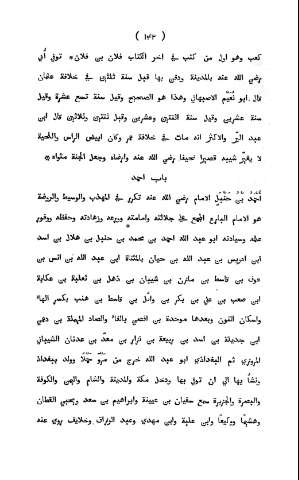 ( ١٤٢ )
كعب وهو اول من كتب فى اخر الكتاب فلان بن فلان* توفى أُبى
رضى الله عنه بالمدينة ودفن بها قبل سنة ثلثين فى خلافة عثمان
قال ابو نُعَيْم الاصبهانى وهذا هو الصحيح وقيل سنة تسع عشرة وقيل
سنة عشرين وقيل سنة اثنتين وعشرين وقيل سنة ثلاثين قال ابن
عبد البر والاكثر انه مات فى خلافة عمر وكان ابيض الراس واللحية
لا يغيّر شيبه قصيرا نحيفا رضى الله عنه وارضاه وجعل الجنة مثواه
باب احمد
أحمد بن حنبل الامام رضى الله عنه تكرر فى المهذب والوسيط والروضة
هو الامام البارع المجمع على جلالته وامامته وورعه وزهادته وحفظه ووفور
علمه وسيادته ابو عبد الله احمد بن محمد بن حنبل بن هلال بن اسد
ابن ادريس بن عبد الله بن حيان بالمثناة ابن عبد الله بن انس بن
عوف بن قاسط بن مازن بن شيبان بن ذهل بن ثعلبة بن عكابة
ابن صعب بن على بن بكر بن وائل بن قاسط بن هنب بكسر الهاء
واسكان النون وبعدها موحدة بن افصى بالفاء والصاد المهملة بن دعمى
ابن جديلة بن اسد بن ربيعة بن نزار بن معدّ بن عدنان الشيبانى
المروزى ثم البغدادى ابو عبد الله خرج من مرو حَمْلًا وولد ببغداد
ونشأ بها الى ان توفى بها ودخل مكة والمدينة والشام واليمن والكوفة
والبصرة والجزيرة سمع سفيان بن عيينة وابراهيم بن سعد ويحيى القطان
وهشيما ووكيعا وابن علية وابن مهدى وعبد الرزاق وخلايق روى عنه